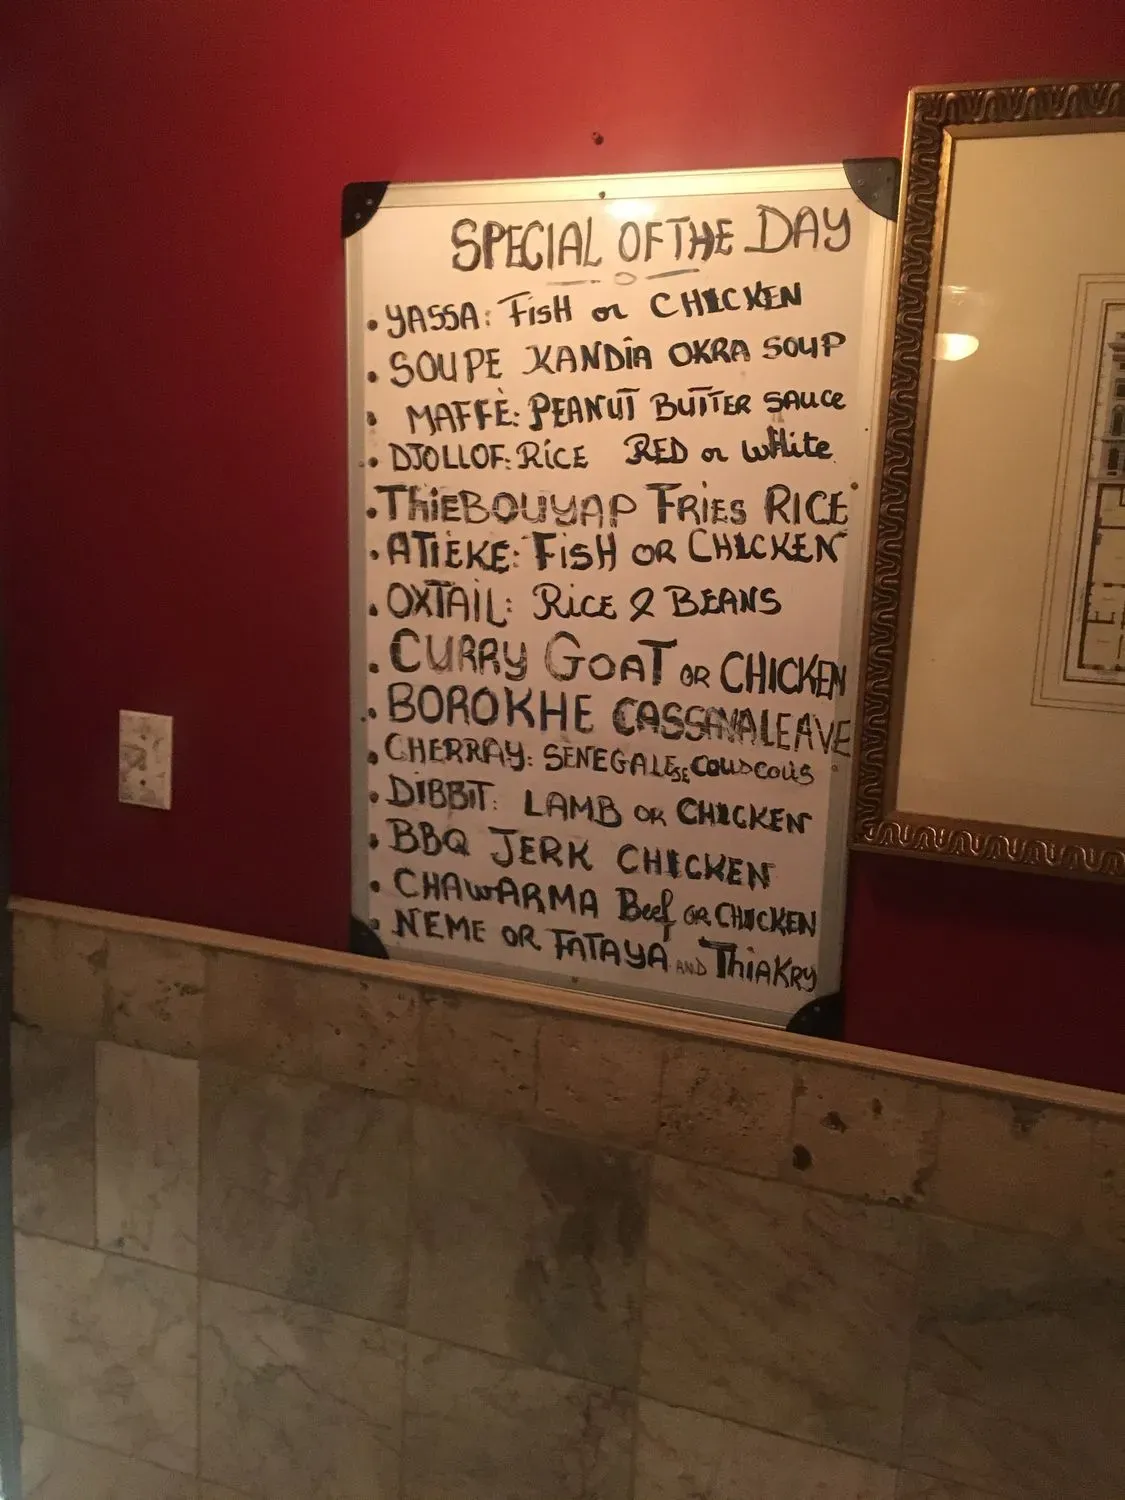 SPECIAL OF THE DAY
• YASSA: FisH or CHICKEN
• SOUPE KANDîA OKRA SOUP
• MAFFÈ: PEANUT BUTTER SAUCE
• DJOLLOF: RiCE RED or WHite
• THiEBOUYAP FRIES RICE
• ATIEKE: FisH OR CHICKEN
• OXTAIL: RicE & BEANS
• CURRY GOAT OR CHICKEN
• BOROKHE CASSAVALEAVE
• CHERRAY: SENEGALESE COUSCOUS
• DiBBiT: LAMB OR CHICKEN
• BBQ JERK CHICKEN
• CHAWARMA Beef OR CHICKEN
• NEME OR FATAYA AND THiAKRY